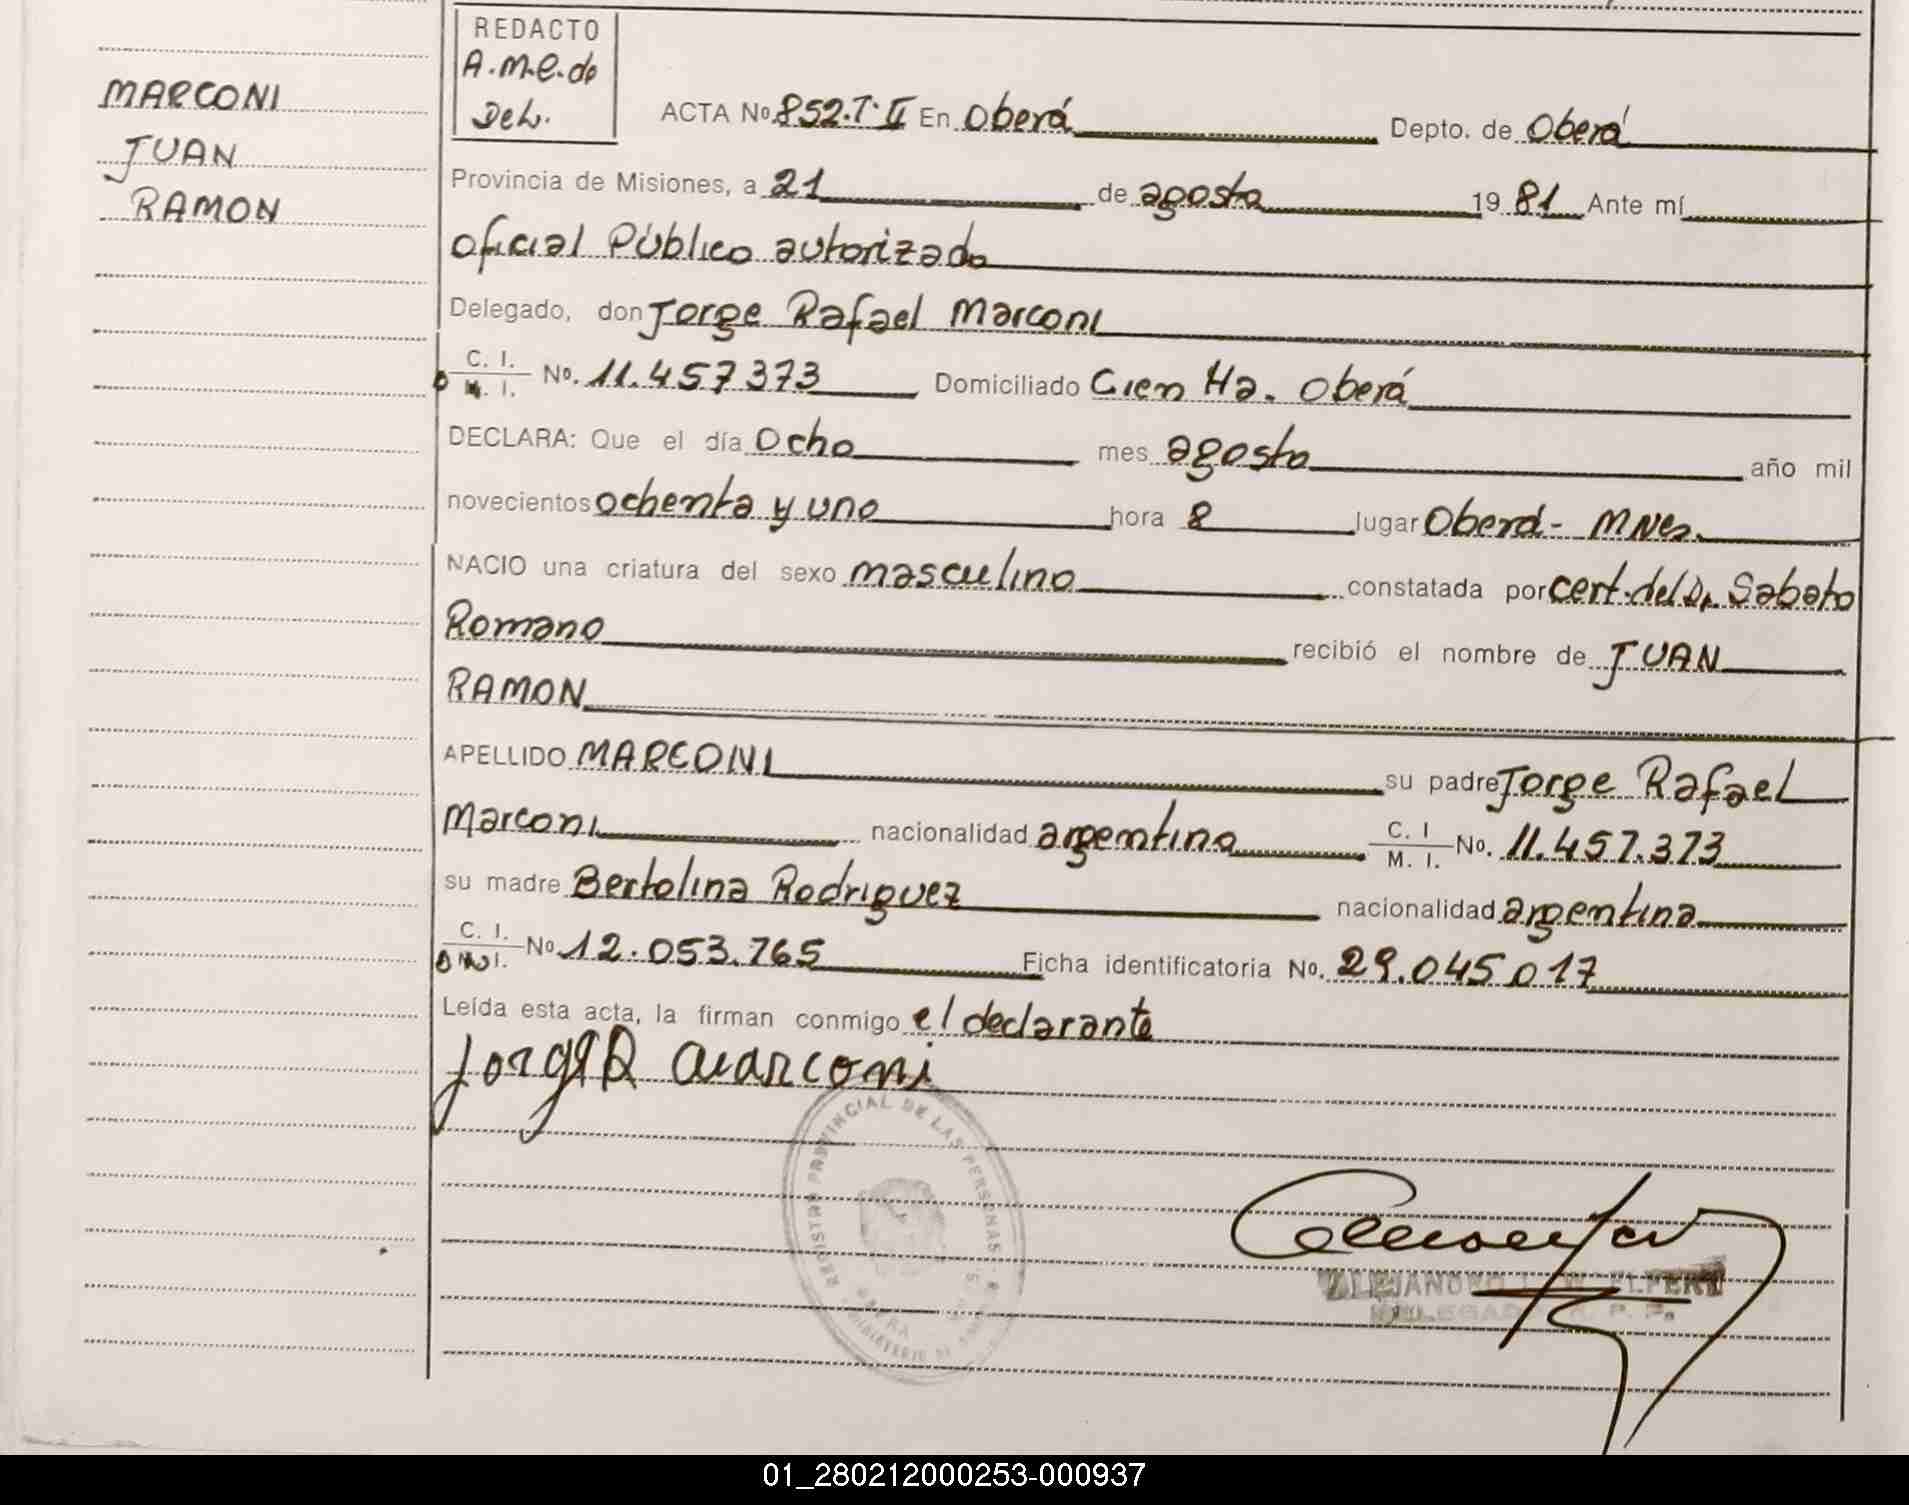 REDACTO
A.M.E.de
Del.
MARCONI
JUAN
RAMON
ACTA No. 852.T.II En Oberá Depto. de Oberá
Provincia de Misiones, a 21 de agosto 1981 Ante mí
Oficial Público autorizado
Delegado, don Jorge Rafael Marconi
C. I. M. I. No. 11.457373 Domiciliado Cien Ha. Oberá
DECLARA: Que el día Ocho mes agosto año mil
novecientos ochenta y uno hora 8 lugar Oberá - Mnes.
NACIO una criatura del sexo masculino constatada por cert. del Dr. Sabato
Romano recibió el nombre de JUAN
RAMON
APELLIDO MARCONI su padre Jorge Rafael
Marconi nacionalidad argentina C. I M. I. No. 11.457.373
su madre Bertolina Rodriguez nacionalidad argentina
C. I. No. 12.053.765 Ficha identificatoria No. 29.045.017
Leída esta acta, la firman conmigo el declarante
Jorge R Marconi
REGISTRO PROVINCIAL DE LAS PERSONAS
ALEJANDRO
DELEGADO R. P. P.
01_280212000253-000937